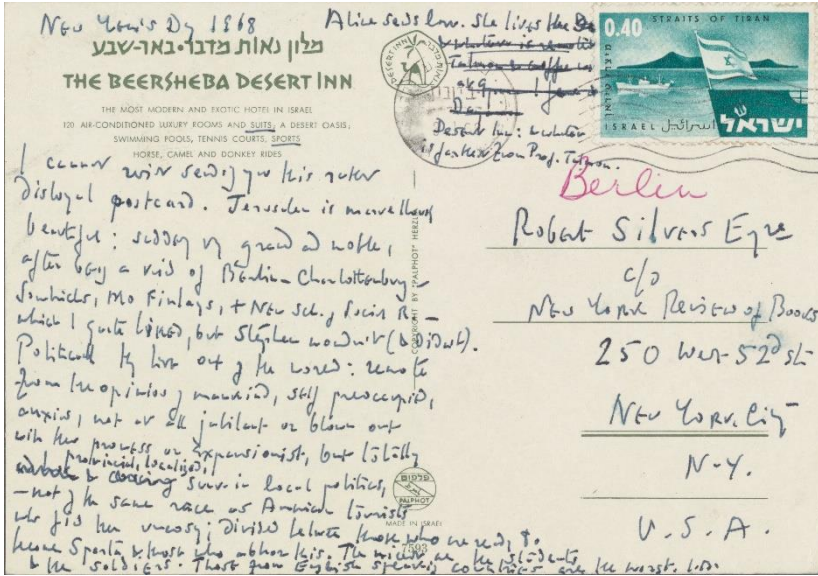 New Year's Dy 1968
מלון נאות מדבר • באר-שבע
THE BEERSHEBA DESERT INN
THE MOST MODERN AND EXOTIC HOTEL IN ISRAEL
120 AIR-CONDITIONED LUXURY ROOMS AND SUITS; A DESERT OASIS;
SWIMMING POOLS, TENNIS COURTS, SPORTS
HORSE, CAMEL AND DONKEY RIDES
Alice sends love. She likes the
Desert Inn:
is further from Prof. Talmon.
DESERT INN
STRAITS OF TIRAN
0.40
ISRAEL اسرائيل ישראל
I cannot resist sending you this rather
disloyal postcard. Jerusalem is marvellously
beautiful: suddenly v grand and noble,
after being a kind of Berlin-Charlottenburg-
Mo Finlays, + New Sch. of Social R-
which I quite liked, but Stephen wouldn't (& didn't).
Politically they live out of the world: remote
from the opinions of mankind, self preoccupied,
anxious, not at all jubilant or blown out
with their prowess or expansionist, but totally
provincial, localized,
in local politics,
- not of the same race as American tourists
who find them uneasy; divided between those who are ready to
become Sparta & those who abhor this. The nicest are the students
& the soldiers. Those from English speaking countries are the worst.
COPYRIGHT BY "PALPHOT" HERZLIA
פלפוט
PALPHOT
MADE IN ISRAEL
7593
Berlin
Robert Silvers Esqre
c/o
New York Review of Books
250 West 52d St
New York City
N.Y.
U.S.A.